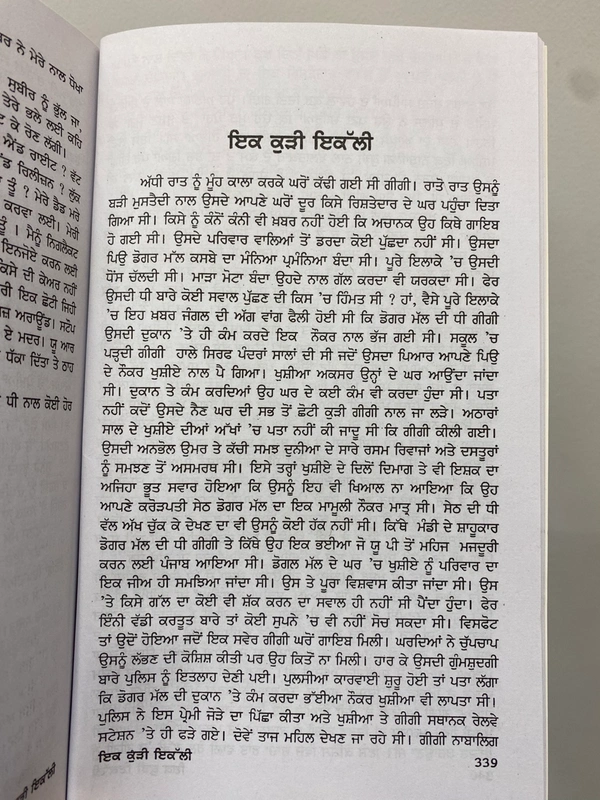 ਰ ਨੇ ਮੇਰੇ ਨਾਲ ਧੋਖਾ
ਸੁਬੀਰ ਨੂੰ ਭੁੱਲ ਜਾ,
ਤੇਰੇ ਭਲੇ ਲਈ ਕਹਿ
ਕੇ ਰੋਣ ਲੱਗੀ।
ਐਂਡ ਰਾਈਟ ? ਵੱਟ
ਰਿਲੀਸ਼ਨ ? ਲੁੱਕ
ਤੂੰ ? ਮੇਰੇ ਡੈਡ ਮਰੇ
ਕਰਵਾ ਲਈ। ਮੇਰੀ
। ਮੈਨੂੰ ਨਿਗਲੈਕਟ
ਇਨਜੋਏ ਕਰਨ ਲਈ
ਕਿਸੇ ਦੀ ਕੇਅਰ ਨਹੀਂ
ਰੀ ਇਕ ਛੋਟੀ ਜਿਹੀ
ਜ਼ ਅਰਾਊਂਡ। ਸਟੌਪ
ਏ ਮਦਰ। ਯੂ ਆਰ
ਧੱਕਾ ਦਿੱਤਾ ਤੇ ਠਾਹ
ਧੀ ਨਾਲ ਕੋਈ ਹੋਰ
ਇਕ ਕੁੜੀ ਇਕੱਲੀ
ਅੱਧੀ ਰਾਤ ਨੂੰ ਮੂੰਹ ਕਾਲਾ ਕਰਕੇ ਘਰੋਂ ਕੱਢੀ ਗਈ ਸੀ ਗੀਗੀ। ਰਾਤੋ ਰਾਤ ਉਸਨੂੰ
ਬੜੀ ਮੁਸਤੈਦੀ ਨਾਲ ਉਸਦੇ ਆਪਣੇ ਘਰੋਂ ਦੂਰ ਕਿਸੇ ਰਿਸ਼ਤੇਦਾਰ ਦੇ ਘਰ ਪਹੁੰਚਾ ਦਿਤਾ
ਗਿਆ ਸੀ। ਕਿਸੇ ਨੂੰ ਕੰਨੋਂ ਕੰਨੀ ਵੀ ਖ਼ਬਰ ਨਹੀਂ ਹੋਈ ਕਿ ਅਚਾਨਕ ਉਹ ਕਿਥੇ ਗਾਇਬ
ਹੋ ਗਈ ਸੀ। ਉਸਦੇ ਪਰਿਵਾਰ ਵਾਲਿਆਂ ਤੋਂ ਡਰਦਾ ਕੋਈ ਪੁੱਛਦਾ ਨਹੀਂ ਸੀ। ਉਸਦਾ
ਪਿਉ ਡੋਗਰ ਮੱਲ ਕਸਬੇ ਦਾ ਮੰਨਿਆ ਪ੍ਰਮੰਨਿਆ ਬੰਦਾ ਸੀ। ਪੂਰੇ ਇਲਾਕੇ 'ਚ ਉਸਦੀ
ਧੌਂਸ ਚੱਲਦੀ ਸੀ। ਮਾੜਾ ਮੋਟਾ ਬੰਦਾ ਉਹਦੇ ਨਾਲ ਗੱਲ ਕਰਦਾ ਵੀ ਯਰਕਦਾ ਸੀ। ਫੇਰ
ਉਸਦੀ ਧੀ ਬਾਰੇ ਕੋਈ ਸਵਾਲ ਪੁੱਛਣ ਦੀ ਕਿਸ 'ਚ ਹਿੰਮਤ ਸੀ ? ਹਾਂ, ਵੈਸੇ ਪੂਰੇ ਇਲਾਕੇ
'ਚ ਇਹ ਖ਼ਬਰ ਜੰਗਲ ਦੀ ਅੱਗ ਵਾਂਗ ਫੈਲੀ ਹੋਈ ਸੀ ਕਿ ਡੋਗਰ ਮੱਲ ਦੀ ਧੀ ਗੀਗੀ
ਉਸਦੀ ਦੁਕਾਨ 'ਤੇ ਹੀ ਕੰਮ ਕਰਦੇ ਇਕ ਨੌਕਰ ਨਾਲ ਭੱਜ ਗਈ ਸੀ। ਸਕੂਲ 'ਚ
ਪੜ੍ਹਦੀ ਗੀਗੀ ਹਾਲੇ ਸਿਰਫ ਪੰਦਰਾਂ ਸਾਲਾਂ ਦੀ ਸੀ ਜਦੋਂ ਉਸਦਾ ਪਿਆਰ ਆਪਣੇ ਪਿਉ
ਦੇ ਨੌਕਰ ਖੁਸ਼ੀਏ ਨਾਲ ਪੈ ਗਿਆ। ਖੁਸ਼ੀਆ ਅਕਸਰ ਉਨ੍ਹਾਂ ਦੇ ਘਰ ਆਉਂਦਾ ਜਾਂਦਾ
ਸੀ। ਦੁਕਾਨ ਤੇ ਕੰਮ ਕਰਦਿਆਂ ਉਹ ਘਰ ਦੇ ਕਈ ਕੰਮ ਵੀ ਕਰਦਾ ਹੁੰਦਾ ਸੀ। ਪਤਾ
ਨਹੀਂ ਕਦੋਂ ਉਸਦੇ ਨੈਣ ਘਰ ਦੀ ਸਭ ਤੋਂ ਛੋਟੀ ਕੁੜੀ ਗੀਗੀ ਨਾਲ ਜਾ ਲੜੇ। ਅਠਾਰਾਂ
ਸਾਲ ਦੇ ਖੁਸ਼ੀਏ ਦੀਆਂ ਅੱਖਾਂ 'ਚ ਪਤਾ ਨਹੀਂ ਕੀ ਜਾਦੂ ਸੀ ਕਿ ਗੀਗੀ ਕੀਲੀ ਗਈ।
ਉਸਦੀ ਅਨਭੋਲ ਉਮਰ ਤੇ ਕੱਚੀ ਸਮਝ ਦੁਨੀਆ ਦੇ ਸਾਰੇ ਰਸਮ ਰਿਵਾਜਾਂ ਅਤੇ ਦਸਤੂਰਾਂ
ਨੂੰ ਸਮਝਣ ਤੋਂ ਅਸਮਰਥ ਸੀ। ਇਸੇ ਤਰ੍ਹਾਂ ਖੁਸ਼ੀਏ ਦੇ ਦਿਲੋਂ ਦਿਮਾਗ ਤੇ ਵੀ ਇਸ਼ਕ ਦਾ
ਅਜਿਹਾ ਭੂਤ ਸਵਾਰ ਹੋਇਆ ਕਿ ਉਸਨੂੰ ਇਹ ਵੀ ਖਿਆਲ ਨਾ ਆਇਆ ਕਿ ਉਹ
ਆਪਣੇ ਕਰੋੜਪਤੀ ਸੇਠ ਡੋਗਰ ਮੱਲ ਦਾ ਇਕ ਮਾਮੂਲੀ ਨੌਕਰ ਮਾਤ੍ਰ ਸੀ। ਸੇਠ ਦੀ ਧੀ
ਵੱਲ ਅੱਖ ਚੁੱਕ ਕੇ ਦੇਖਣ ਦਾ ਵੀ ਉਸਨੂੰ ਕੋਈ ਹੱਕ ਨਹੀਂ ਸੀ। ਕਿੱਥੇ ਮੰਡੀ ਦੇ ਸ਼ਾਹੂਕਾਰ
ਡੋਗਰ ਮੱਲ ਦੀ ਧੀ ਗੀਗੀ ਤੇ ਕਿੱਥੇ ਉਹ ਇਕ ਭਈਆ ਜੋ ਯੂ ਪੀ ਤੋਂ ਮਹਿਜ ਮਜਦੂਰੀ
ਕਰਨ ਲਈ ਪੰਜਾਬ ਆਇਆ ਸੀ। ਡੋਗਲ ਮੱਲ ਦੇ ਘਰ 'ਚ ਖੁਸ਼ੀਏ ਨੂੰ ਪਰਿਵਾਰ ਦਾ
ਇਕ ਜੀਅ ਹੀ ਸਮਝਿਆ ਜਾਂਦਾ ਸੀ। ਉਸ ਤੇ ਪੂਰਾ ਵਿਸ਼ਵਾਸ ਕੀਤਾ ਜਾਂਦਾ ਸੀ। ਉਸ
'ਤੇ ਕਿਸੇ ਗੱਲ ਦਾ ਕੋਈ ਵੀ ਸ਼ੱਕ ਕਰਨ ਦਾ ਸਵਾਲ ਹੀ ਨਹੀਂ ਸੀ ਪੈਂਦਾ ਹੁੰਦਾ। ਫੇਰ
ਇੰਨੀ ਵੱਡੀ ਕਰਤੂਤ ਬਾਰੇ ਤਾਂ ਕੋਈ ਸੁਪਨੇ 'ਚ ਵੀ ਨਹੀਂ ਸੋਚ ਸਕਦਾ ਸੀ। ਵਿਸਫੋਟ
ਤਾਂ ਉਦੋਂ ਹੋਇਆ ਜਦੋਂ ਇਕ ਸਵੇਰ ਗੀਗੀ ਘਰੋਂ ਗਾਇਬ ਮਿਲੀ। ਘਰਦਿਆਂ ਨੇ ਚੁੱਪਚਾਪ
ਉਸਨੂੰ ਲੱਭਣ ਦੀ ਕੋਸ਼ਿਸ਼ ਕੀਤੀ ਪਰ ਉਹ ਕਿਤੋਂ ਨਾ ਮਿਲੀ। ਹਾਰ ਕੇ ਉਸਦੀ ਗੁੰਮਸ਼ੁਦਗੀ
ਬਾਰੇ ਪੁਲਿਸ ਨੂੰ ਇਤਲਾਹ ਦੇਣੀ ਪਈ। ਪੁਲਸੀਆ ਕਾਰਵਾਈ ਸ਼ੁਰੂ ਹੋਈ ਤਾਂ ਪਤਾ ਲੱਗਾ
ਕਿ ਡੋਗਰ ਮੱਲ ਦੀ ਦੁਕਾਨ 'ਤੇ ਕੰਮ ਕਰਦਾ ਭੱਈਆ ਨੌਕਰ ਖੁਸ਼ੀਆ ਵੀ ਲਾਪਤਾ ਸੀ।
ਪੁਲਿਸ ਨੇ ਇਸ ਪ੍ਰੇਮੀ ਜੋੜੇ ਦਾ ਪਿੱਛਾ ਕੀਤਾ ਅਤੇ ਖੁਸ਼ੀਆ ਤੇ ਗੀਗੀ ਸਥਾਨਕ ਰੇਲਵੇ
ਸਟੇਸ਼ਨ 'ਤੇ ਹੀ ਫੜੇ ਗਏ। ਦੋਵੇਂ ਤਾਜ ਮਹਿਲ ਦੇਖਣ ਜਾ ਰਹੇ ਸੀ। ਗੀਗੀ ਨਾਬਾਲਿਗ
ਇਕ ਕੁੜੀ ਇਕੱਲੀ 339